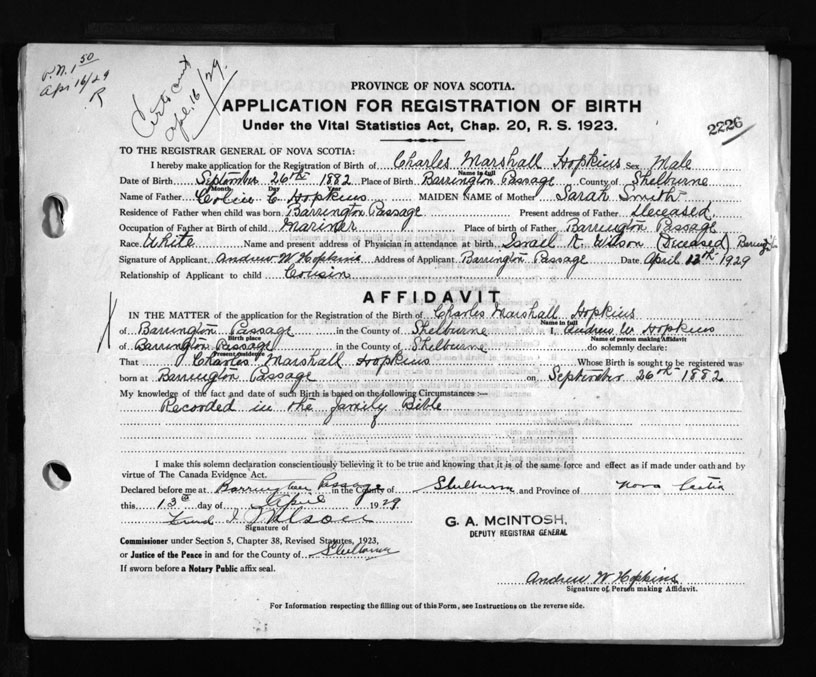 P.N. 1 50
Apr 16/29
R
Certs sent
Apl. 16/29.
PROVINCE OF NOVA SCOTIA.
APPLICATION FOR REGISTRATION OF BIRTH
Under the Vital Statistics Act, Chap. 20, R. S. 1923.
2226
TO THE REGISTRAR GENERAL OF NOVA SCOTIA:
I hereby make application for the Registration of Birth of Charles Marshall Hopkins Sex Male
Name in full
Date of Birth September 26th 1882 Place of Birth Barrington Passage County of Shelburne
Month Day Year
Name of Father C. Hopkins MAIDEN NAME of Mother Sarah Smith
Residence of Father when child was born Barrington Passage Present address of Father Deceased
Occupation of Father at Birth of child Mariner Place of birth of Father Barrington Passage
Race White Name and present address of Physician in attendance at birth Israel K. Wilson (Diceased) Barrington
Signature of Applicant Andrew W Hopkins Address of Applicant Barrington Passage Date April 13th 1929
Relationship of Applicant to child Cousin
AFFIDAVIT
IN THE MATTER of the application for the Registration of the Birth of Charles Marshall Hopkins
Name in full
of Barrington Passage in the County of Shelburne I, Andrew W Hopkins
Birth place Name of person making Affidavit
of Barrington Passage in the County of Shelburne do solemnly declare:
Present residence
That Charles Marshall Hopkins Whose Birth is sought to be registered was
born at Barrington Passage on September 26th 1882
My knowledge of the fact and date of such Birth is based on the following Circumstances:—
Recorded in the family Bible
I make this solemn declaration conscientiously believing it to be true and knowing that it is of the same force and effect as if made under oath and by
virtue of The Canada Evidence Act.
Declared before me at Barrington Passage in the County of Shelburne and Province of Nova Scotia
this 13th day of April 1929
Wilson
Signature of
G. A. McINTOSH,
DEPUTY REGISTRAR GENERAL
Commissioner under Section 5, Chapter 38, Revised Statutes, 1923,
or Justice of the Peace in and for the County of Shelburne
If sworn before a Notary Public affix seal.
Andrew W Hopkins
Signature of Person making Affidavit.
For Information respecting the filling out of this Form, see Instructions on the reverse side.